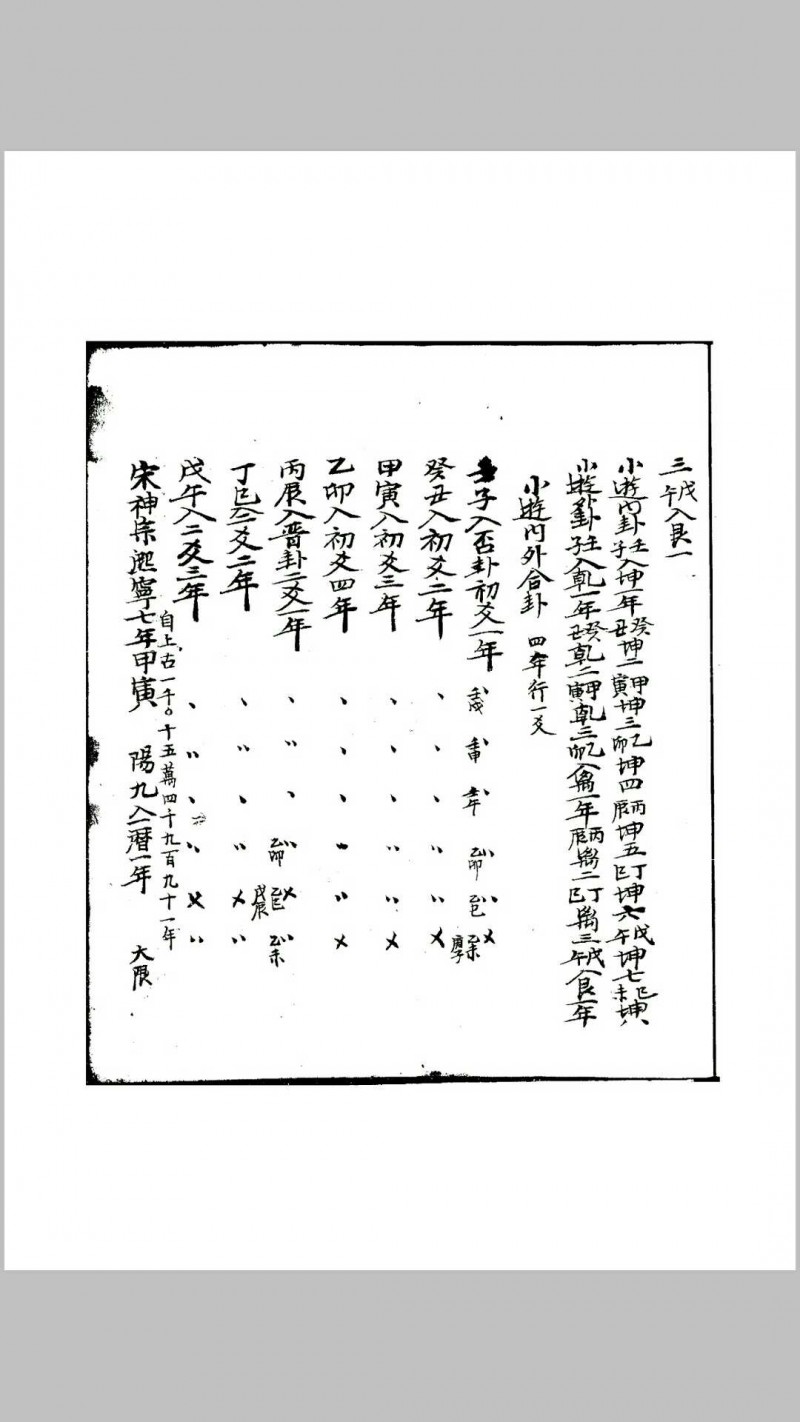 三 戊午入艮一
小遊內卦壬子入坤一年癸丑坤二甲寅坤三乙卯坤四丙辰坤五丁巳坤六戊午坤七己未坤八
小遊外卦壬子入乾一年癸丑乾二甲寅乾三乙卯入離一年丙辰離二丁巳離三戊午入艮一年
小遊內外合卦 四年行一爻
壬子入否卦初爻一年 壬戌 壬申 壬午 乙卯 乙巳 乙未
癸丑入初爻二年
甲寅入初爻三年
乙卯入初爻四年
丙辰入晋卦二爻一年 乙卯 乙巳 戊辰 乙未
丁巳入二爻二年
戊午入二爻三年
自上古一千〇十五萬四千九百九十一年
宋神宗熙寧七年甲寅 陽九入一曆一年 大限